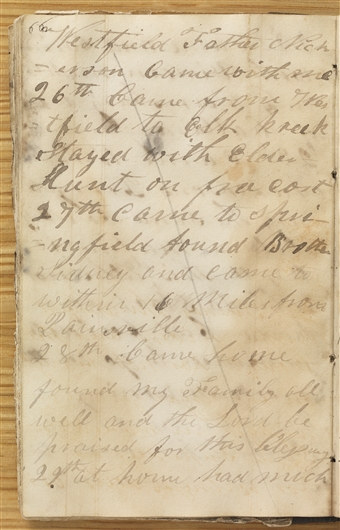 Westfield Father Nick
=erson Came with me
26th Came from Wes
=tfield to Elk kreek
Stayed with Elder
Hunt on free cost
27th Came to Spri
=ngfield found Brother
Sidney and came to
within 16 Miles from
Painsville
28th Came home
found my Family all
well and the Lord be
praised for this blessing
29th at home had much